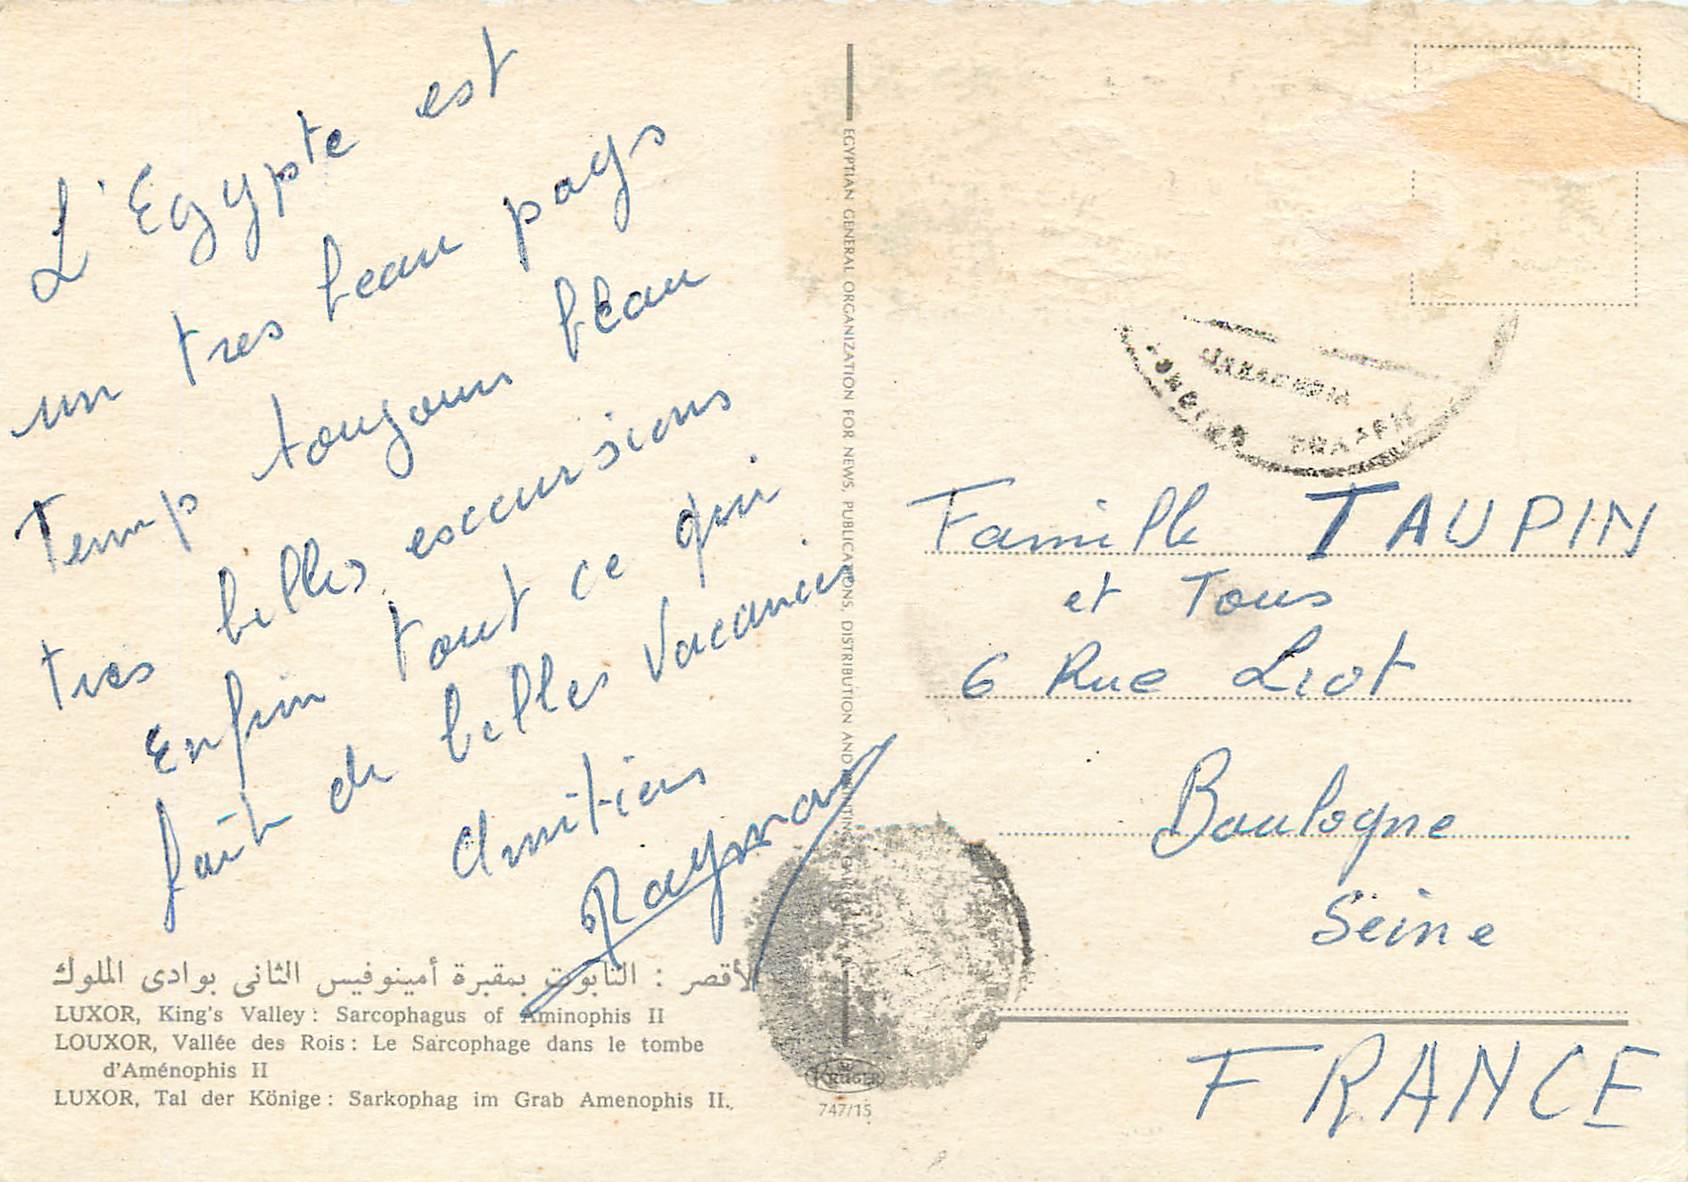 L'Egypte est
un tres beau pays
Temp toujours beau
tres belles excursions
Enfin tout ce qui
fait de belles vacances
Amitiés
Raymond
الأقصر : التابوت بمقبرة أمينوفيس الثانى بوادى الملوك
LUXOR, King's Valley : Sarcophagus of Aminophis II
LOUXOR, Vallée des Rois : Le Sarcophage dans le tombe
d'Aménophis II
LUXOR, Tal der Könige : Sarkophag im Grab Amenophis II.
EGYPTIAN GENERAL ORGANIZATION FOR NEWS, PUBLICATIONS, DISTRIBUTION AND PRINTING
KRÜGER
747/15
Famille TAUPIN
et Tous
6 Rue Liot
Boulogne
Seine
FRANCE